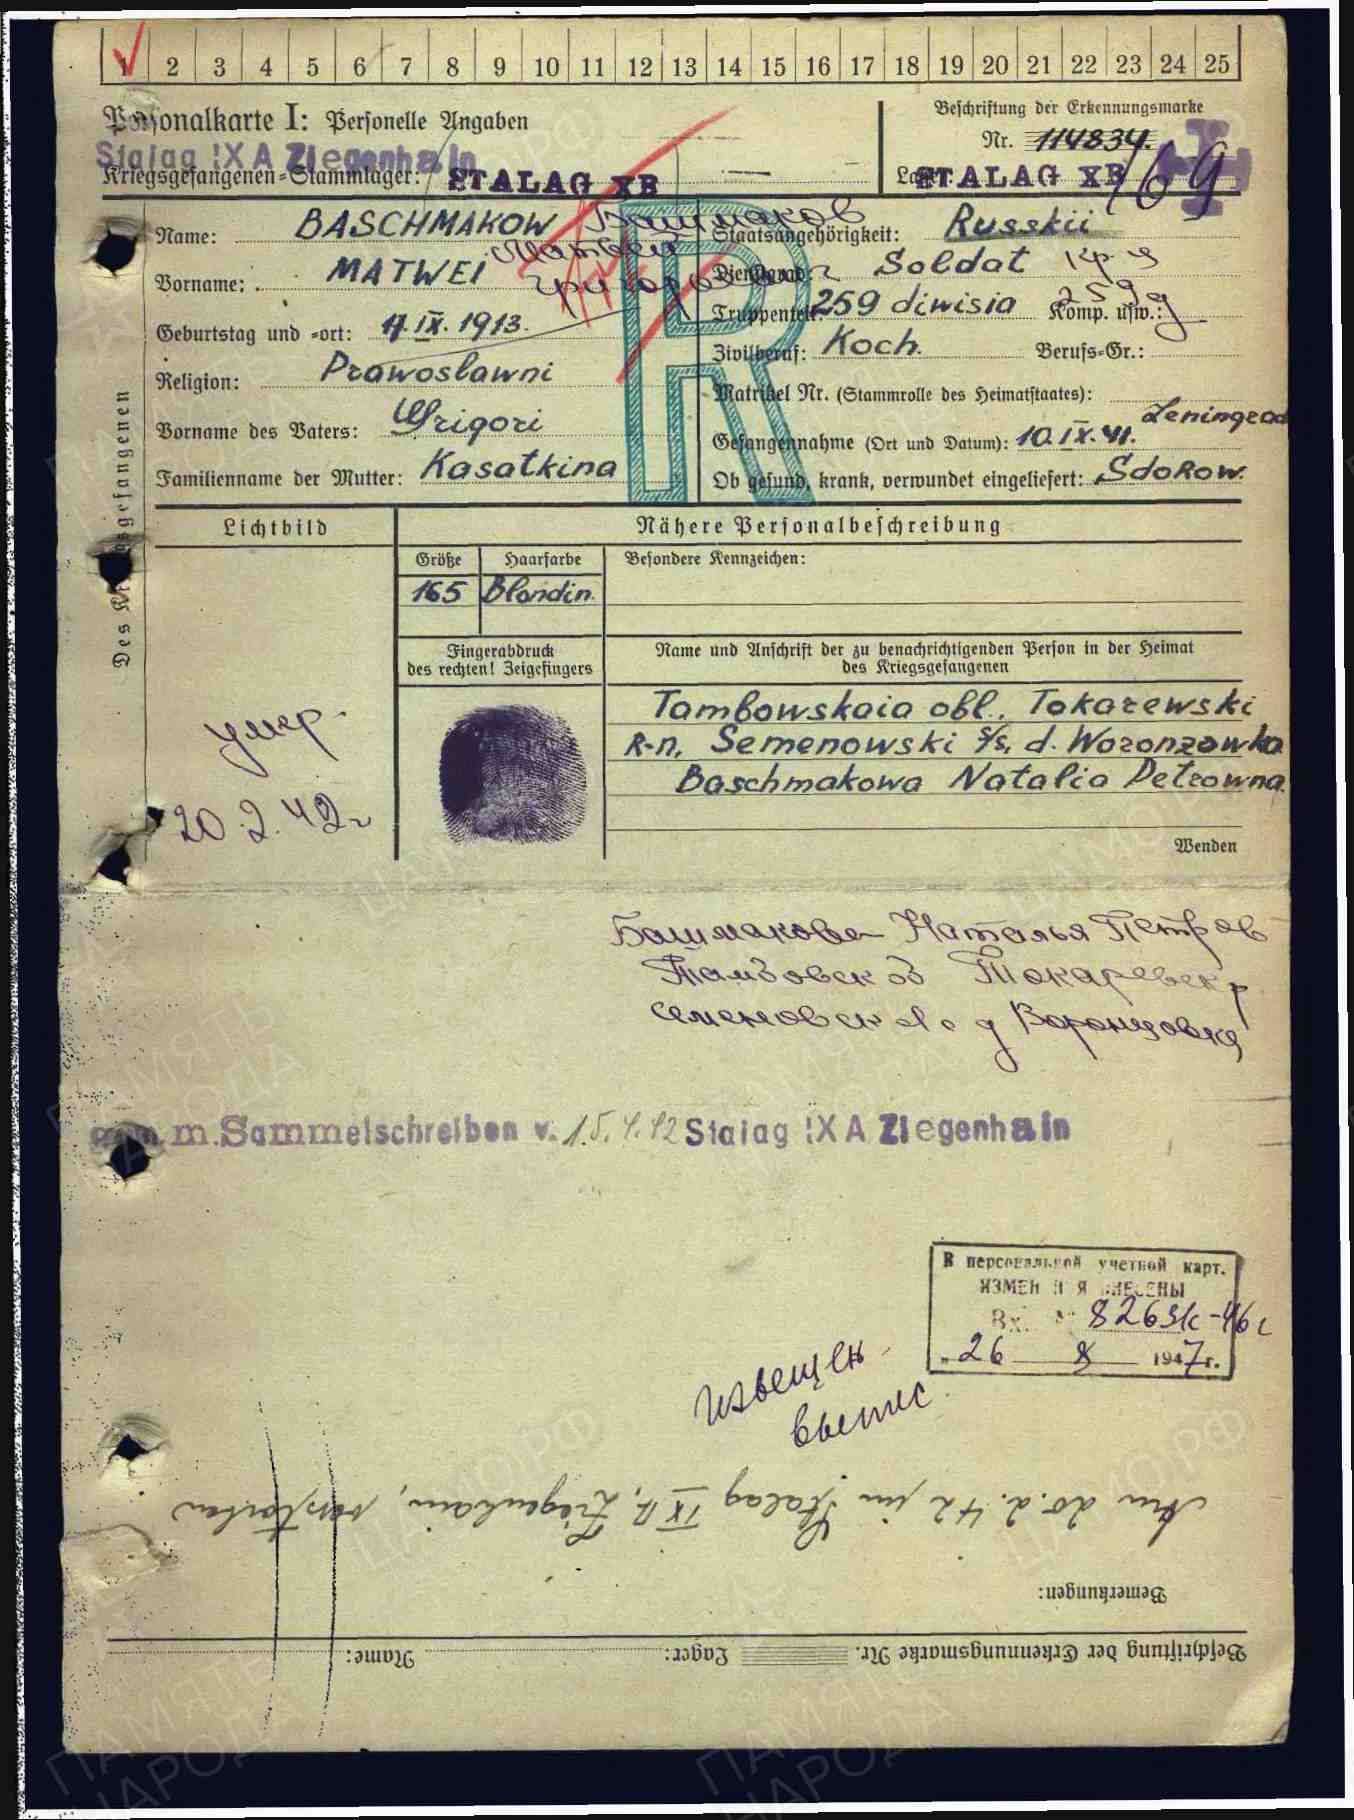 1 2 3 4 5 6 7 8 9 10 11 12 13 14 15 16 17 18 19 20 21 22 23 24 25
Personalkarte I: Personelle Angaben
Beschriftung der Erkennungsmarke
Nr. 114834.
Stalag IX A Ziegenhain
Kriegsgefangenen=Stammlager: STALAG XB
Lager: STALAG XB 169
Des Kriegsgefangenen
Name: BASCHMAKOW Башмаков
Staatsangehörigkeit: Russkii
Vorname: MATWEI Матвей
Григорьевич
Dienstgrad: Soldat кр-ц
Geburtstag und =ort: 17.IX.1913.
Truppenteil: 259 diwisia Komp. usw.: 259 д
Zivilberuf: Koch. Berufs=Gr.:
Religion: Prawoslawni
Matrikel Nr. (Stammrolle des Heimatstaates):
Vorname des Vaters: Grigori
Gefangennahme (Ort und Datum): 10.IX.41. Leningrad
Familienname der Mutter: Kasatkina
Ob gesund, krank, verwundet eingeliefert: Sdorow.
Lichtbild
Nähere Personalbeschreibung
Größe Haarfarbe Besondere Kennzeichen:
165 Blondin.
Fingerabdruck
des rechten! Zeigefingers
Name und Anschrift der zu benachrichtigenden Person in der Heimat
des Kriegsgefangenen
Tambowskaia obl., Tokarewski
R-n, Semenowski s/s, d. Woronzowka
Baschmakowa Natalia Petrowna.
умер
20.2.42г
Wenden
Башмакова Наталья Петров
Тамбовск об Токаревск р
Семеновск с/с д Воронцовка
m. Sammelschreiben v. 15.4.42 Stalag IX A Ziegenhain
В персональной учетной карт.
ИЗМЕНЕНИЯ ВНЕСЕНЫ
Вх. № 8269к-46с
"26 8 1947г.
извещен
выпис
Am 20.2.42 im Stalag IX A, Ziegenhain, verstorben
Bemerkungen:
Beschriftung der Erkennungsmarke Nr. Lager: Name: